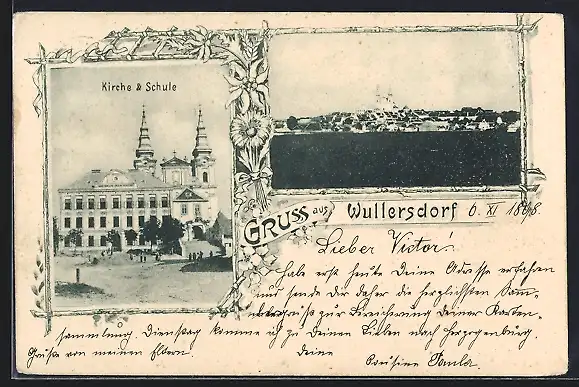 Kirche & Schule
GRUSS aus Wullersdorf 6. XI 1898.
Lieber Victor!
habe erst heute Deine Adresse erfahren
und sende Dir daher die herzlichsten
zur Bereicherung Deiner Karten-
sammlung. Dienstag komme ich zu Deinen Lieben nach Herzogenburg.
Grüße von meinen Eltern. Deine Cousine Paula.